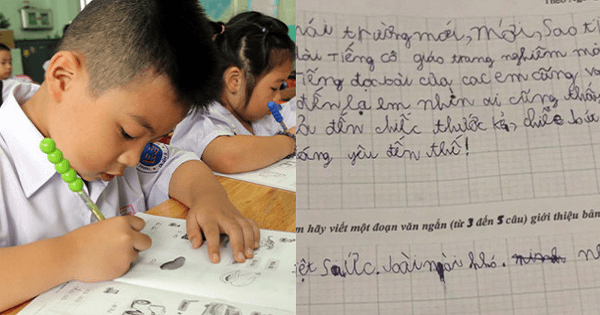 Theo
mái trường mới, Mới, Sao
dài Tiếng cô giáo trang nghiêm
tiếng đọc bài của các em cũng
đến lạ em nhìn ai cũng thấy
đến chiếc thước kẻ, chiếc bút
áng yêu đến thế!
m hãy viết một đoạn văn ngắn (từ 3 đến 5 câu) giới thiệu bản
bài này khó.